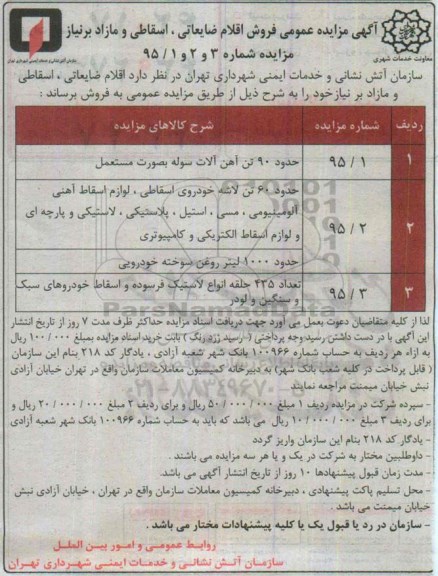 آگهی مزایده عمومی فروش اقلام ضایعاتی ، اسقاطی و مازاد برنیاز
مزایده شماره ۳ و ۲ و ۱ / ۹۵
معاونت خدمات شهری
سازمان آتش نشانی و خدمات ایمنی شهرداری تهران در نظر دارد اقلام ضایعاتی ، اسقاطی
و مازاد بر نیاز خود را به شرح ذیل از طریق مزایده عمومی به فروش برساند :
ردیف شماره مزایده شرح کالاهای مزایده
۱ ۹۵ / ۱ حدود ۹۰ تن آهن آلات سوله بصورت مستعمل
حدود ۶۰ تن لاشه خودروی اسقاطی ، لوازم اسقاط آهنی
۲ ۹۵ / ۲ آلومینیومی ، مسی ، استیل ، پلاستیکی ، لاستیکی و پارچه ای
و لوازم اسقاط الکتریکی و کامپیوتری
حدود ۱۰۰۰ لیتر روغن سوخته خودرویی
۳ ۹۵ / ۳ تعداد ۴۳۵ حلقه انواع لاستیک فرسوده و اسقاط خودروهای سبک
و سنگین و لودر
ParsNamadData
لذا از کلیه متقاضیان دعوت بعمل می آورد جهت دریافت اسناد مزایده حداکثر ظرف مدت ۷ روز از تاریخ انتشار
این آگهی با در دست داشتن رسید وجه پرداختی ( رسید زرد رنگ ) بابت خرید اسناد مزایده بمبلغ ۱۰۰/۰۰۰ ریال
به ازاء هر ردیف به حساب شماره ۱۰۰۹۶۶ بانک شهر شعبه آزادی ، یادگار کد ۲۱۸ بنام این سازمان
( قابل پرداخت در کلیه شعب بانک شهر) به دبیرخانه کمیسیون معاملات سازمان واقع در تهران خیابان آزادی
نبش خیابان میمنت مراجعه نمایند
- سپرده شرکت در مزایده ردیف ۱ مبلغ ۵۰/۰۰۰/۰۰۰ ریال و برای ردیف ۲ مبلغ ۲۰/۰۰۰/۰۰۰ ریال و
برای ردیف ۳ مبلغ ۱۰/۰۰۰/۰۰۰ ریال می باشد که باید به حساب شماره ۱۰۰۹۶۶ بانک شهر شعبه آزادی
- یادگار کد ۲۱۸ بنام این سازمان واریز گردد
- داوطلبین مختار به شرکت در یک و یا هر سه مزایده می باشند .
- مدت زمان قبول پیشنهادها ۱۰ روز از تاریخ انتشار آگهی می باشد.
- محل تسلیم پاکت پیشنهادی ، دبیرخانه کمیسیون معاملات سازمان واقع در تهران ، خیابان آزادی نبش
خیابان میمنت می باشد .
- سازمان در رد یا قبول یک یا کلیه پیشنهادات مختار می باشد .
روابط عمومی و امور بین الملل
سازمان آتش نشانی و خدمات ایمنی شهرداری تهران